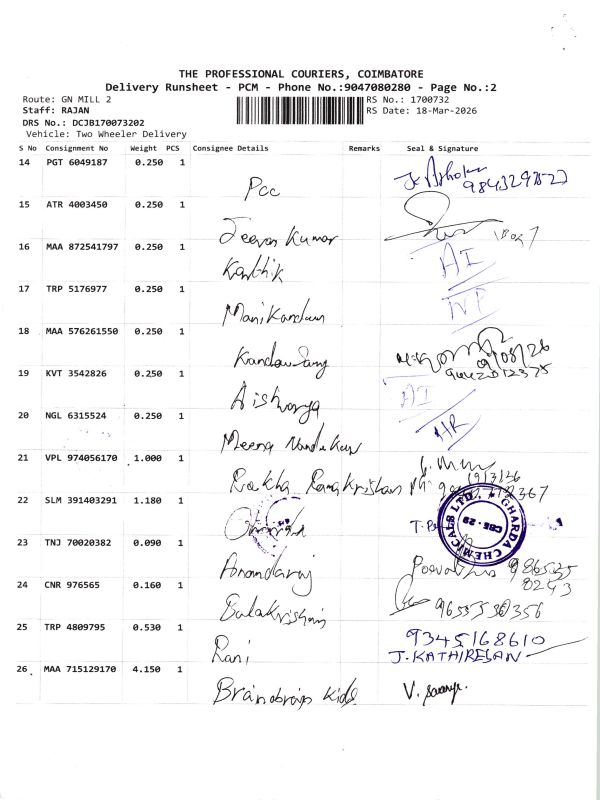 THE PROFESSIONAL COURIERS, COIMBATORE
Delivery Runsheet - PCM - Phone No.:9047080280 - Page No.:2
Route: GN MILL 2
RS No.: 1700732
Staff: RAJAN
RS Date: 18-Mar-2026
DRS No.: DCJB170073202
Vehicle: Two Wheeler Delivery
S No Consignment No Weight PCS Consignee Details Remarks Seal & Signature
14 PGT 6049187 0.250 1 Pcc
15 ATR 4003450 0.250 1 Jeevan Kumar
16 MAA 872541797 0.250 1 Karthik AI
17 TRP 5176977 0.250 1 Manikandan
18 MAA 576261550 0.250 1
19 KVT 3542826 0.250 1 Aishwarya AI
20 NGL 6315524 0.250 1 Meena
21 VPL 974056170 1.000 1
22 SLM 391403291 1.180 1
GHARDA CHEMICALS LTD
CBE-29
23 TNJ 70020382 0.090 1 Anandaraj
24 CNR 976565 0.160 1 Balakrishnan
25 TRP 4809795 0.530 1 Rani 9345168610
J. KATHIRESAN
26 MAA 715129170 4.150 1 Brainobrain Kids